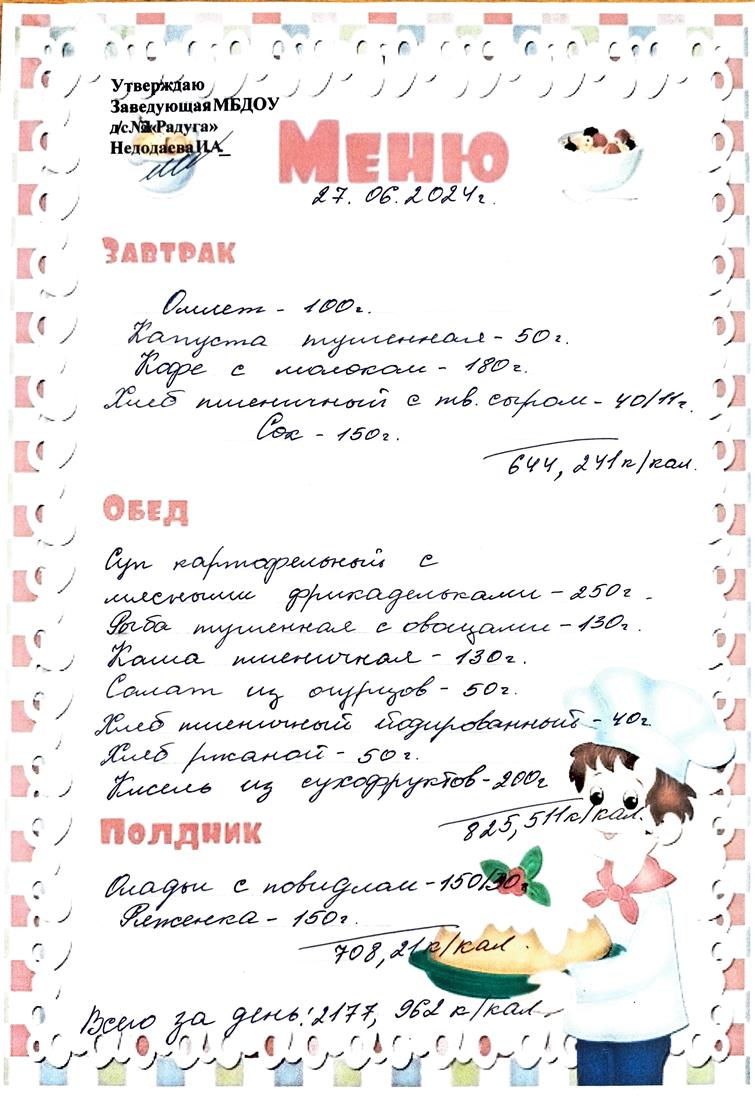 Утверждаю
Заведующая МБДОУ
д/с «Радуга»
Недодаева И.А_
Меню
27. 06. 2024г.
Завтрак
Омлет - 100г.
Капуста тушенная - 50г.
Кофе с молоком - 180г.
Хлеб пшеничный с тв. сыром - 40/11г.
Сок - 150г.
644, 241к/кал.
Обед
Суп картофельный с
мясными фрикадельками - 250г.
Рыба тушенная с овощами - 130г.
Каша пшеничная - 130г.
Салат из огурцов - 50г.
Хлеб пшеничный йодированный - 40г
Хлеб ржаной - 50г.
Кисель из сухофруктов - 200г
825, 511к/кал.
Полдник
Оладьи с повидлом - 150/30г
Ряженка - 150г.
708, 21к/кал.
Всего за день: 2177, 962 к/кал